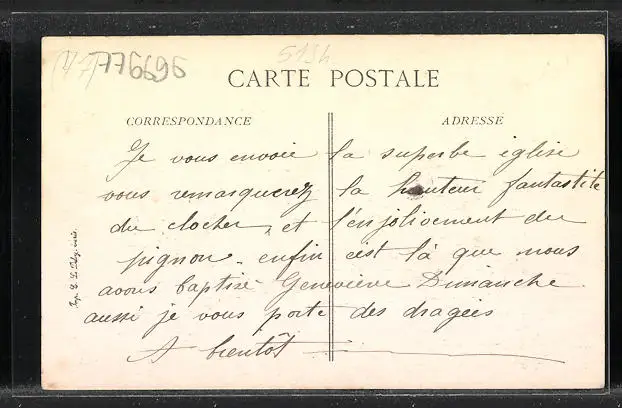 (47) 776696
5134
CARTE POSTALE
CORRESPONDANCE
ADRESSE
Je vous envoie la superbe église
vous remarquerez la hauteur fantastite
du clocher, et l'enjolivement du
pignon. enfin c'est là que nous
avons baptisé Geneviève Dimanche
aussi je vous porte des dragées
A bientôt